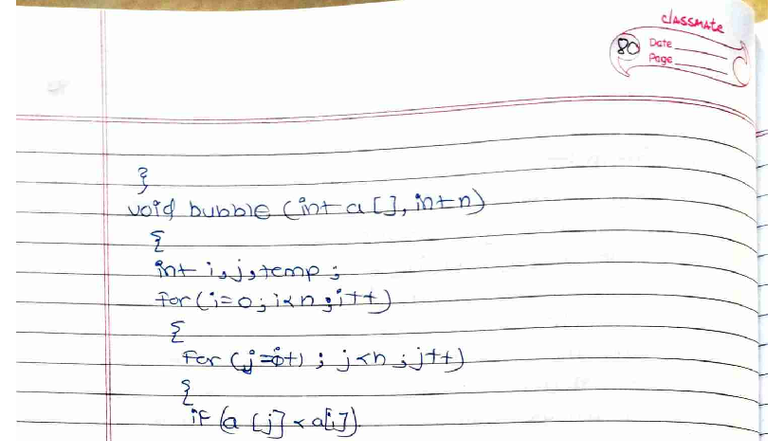 classmate
80
Date
Page
}
void bubble (int a [], int n)
{
int i, j, temp ;
for (i=0 ; i<n ; i++)
{
for (j=i+1 ; j<n ; j++)
{
if (a [j] < a[i])